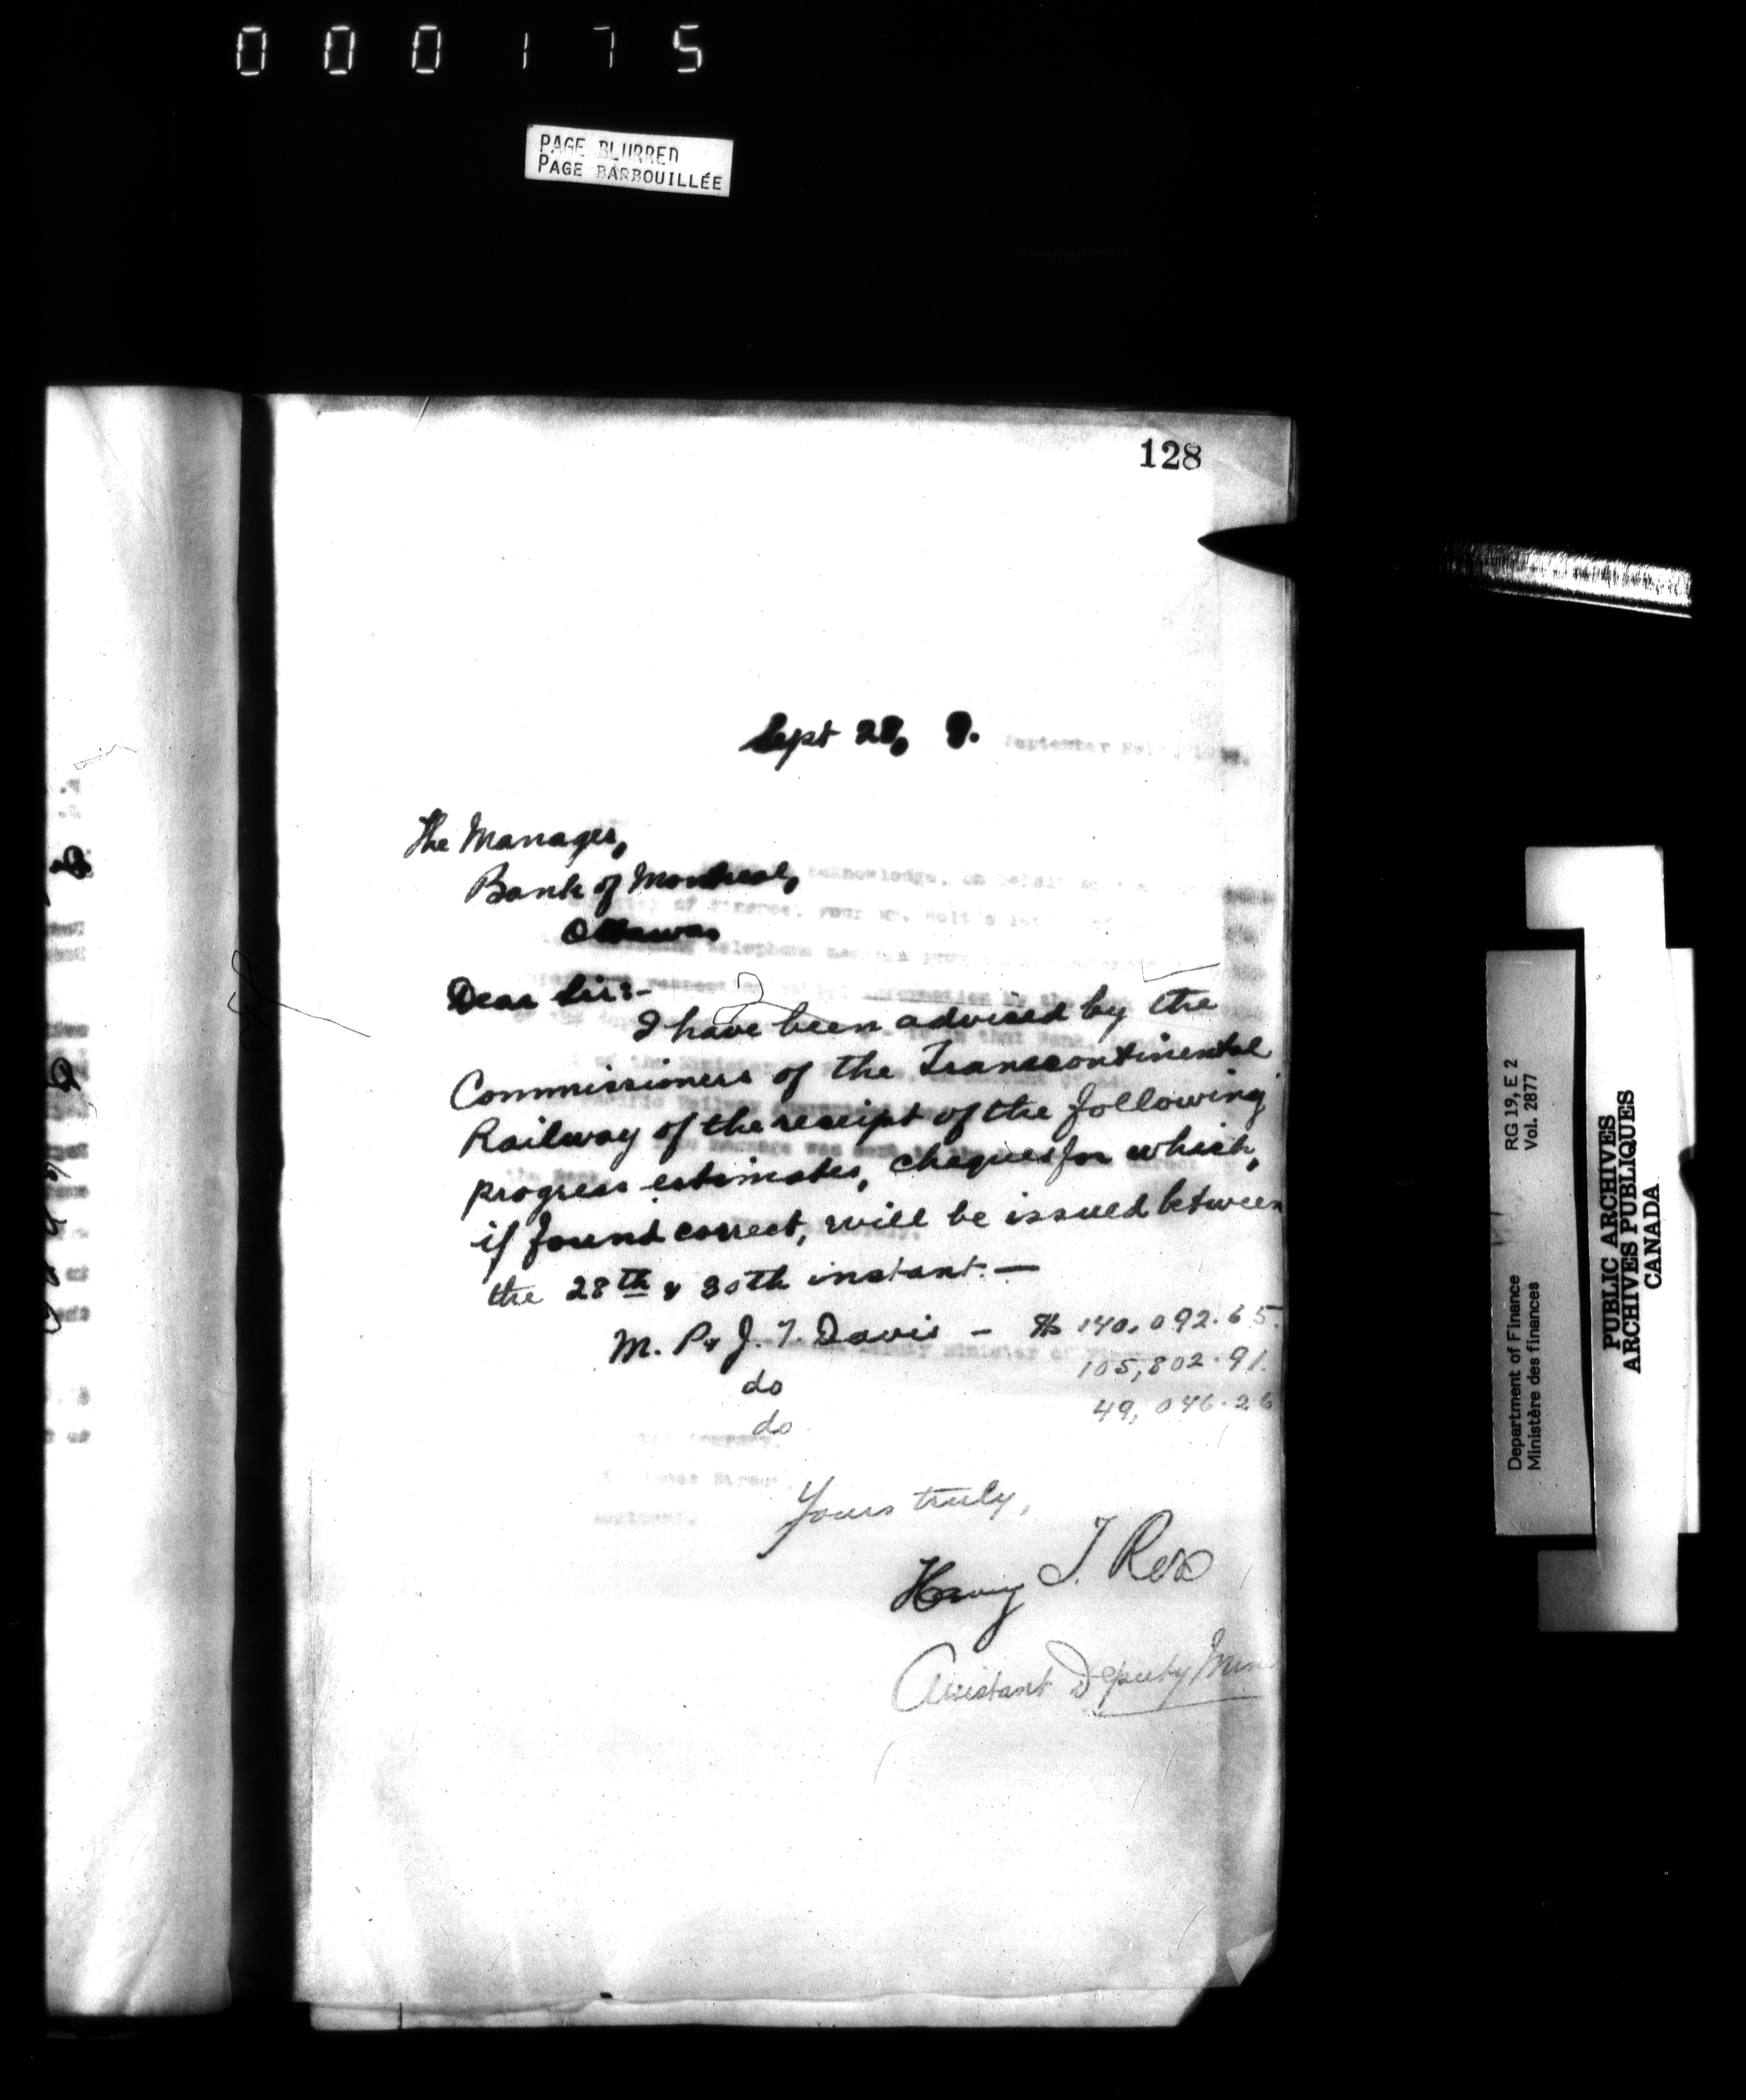 000175
PAGE BLURRED
PAGE BARBOUILLÉE
128
Sept 28, 8.
The Manager,
Bank of Montreal,
Ottawa
Dear Sir:-
I have been advised by the
Commissioners of the Transcontinental
Railway of the receipt of the following
progress estimates, cheques for which,
if found correct, will be issued between
the 28th & 30th instant.—
M. P. & J. T. Davis - $ 140,092.65
do 105,802.91
do 49,046.26
Yours truly,
Henry T. Ross
Assistant Deputy Min
Department of Finance RG 19, E 2
Ministère des finances Vol. 2877
PUBLIC ARCHIVES
ARCHIVES PUBLIQUES
CANADA